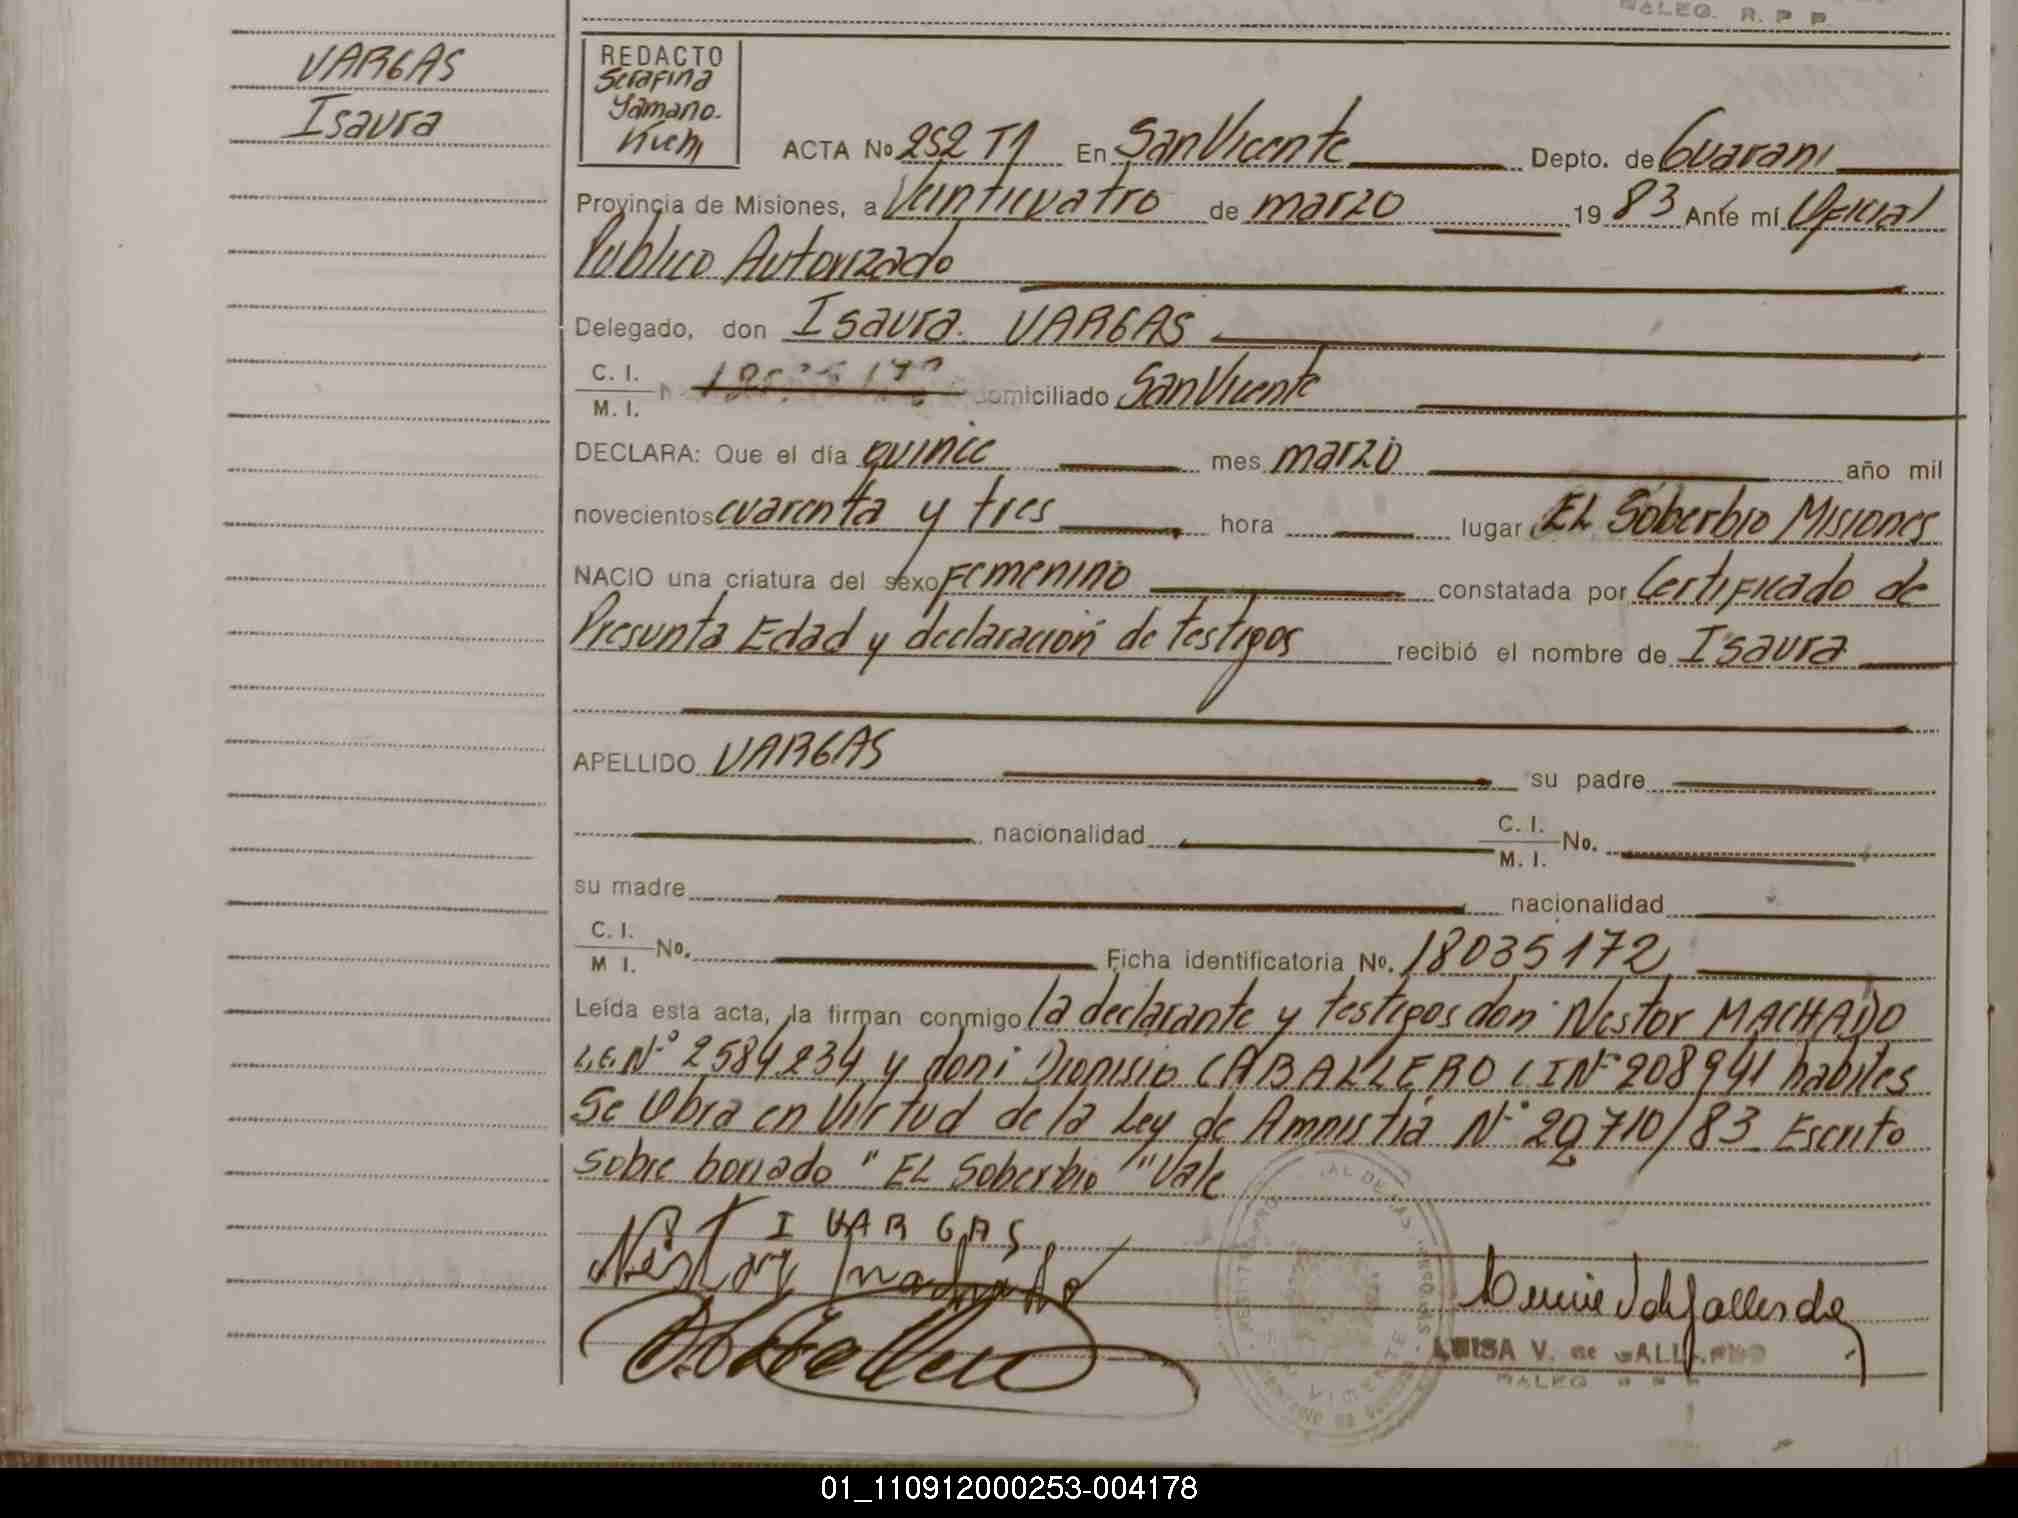 VARGAS
Isaura
REDACTO
Serafina
Yamano.
Kich
ACTA No 252 T1 En San Vicente Depto. de Guarani
Provincia de Misiones, a Veinticuatro de marzo 19 83 Ante mí Oficial
Publico Autorizado
Delegado, don Isaura. VARGAS
C. I.
M. I.
domiciliado San Vicente
DECLARA: Que el día quince mes marzo año mil
novecientos cuarenta y tres hora lugar EL Soberbio Misiones
NACIO una criatura del sexo Femenino constatada por Certificado de
Presunta Edad y declaración de testigos recibió el nombre de Isaura
APELLIDO VARGAS su padre
nacionalidad C. I. M. I. No.
su madre nacionalidad
C. I. M I. No. Ficha identificatoria No. 18035172
Leída esta acta, la firman conmigo la declarante y testigos don Nestor MACHADO
L.E. Nº 2584234 y don Dionisio CABALLERO C I Nº 208941 habiles
Se Obra en Virtud de la Ley de Amnistia Nº 20710/83 Escrito
sobre borrado "EL Soberbio" Vale
I VARGAS
Nestor Machado
LUISA V. de GALLARDO
01_110912000253-004178